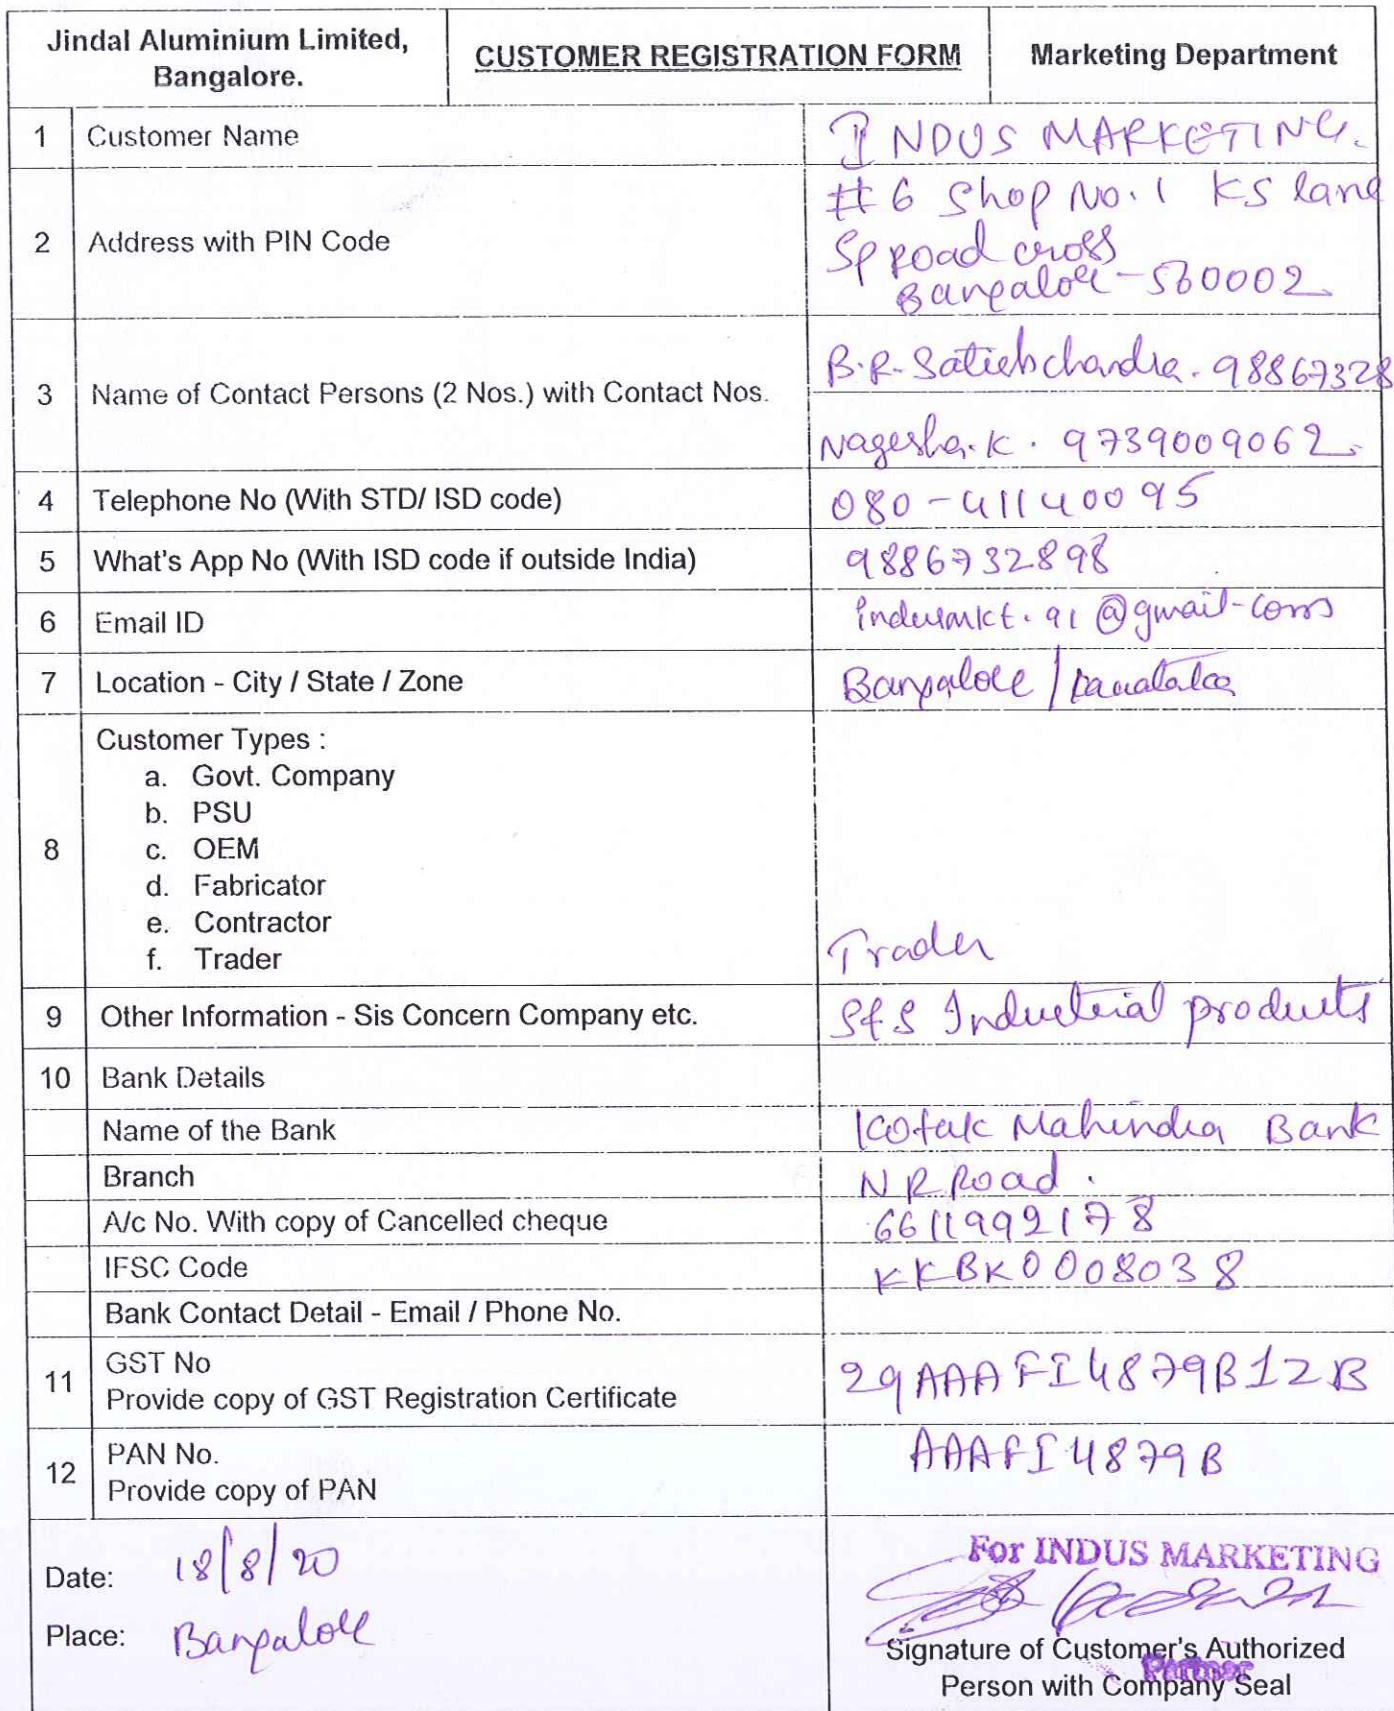 Jindal Aluminium Limited,
Bangalore.
CUSTOMER REGISTRATION FORM
Marketing Department
1 Customer Name INDUS MARKETING.
2 Address with PIN Code
#6 Shop No. 1 KS lane
SP road cross
Bangalore - 560002
3 Name of Contact Persons (2 Nos.) with Contact Nos.
B.R. Satishchandra. 98867328
Nagesha.K. 9739009062.
4 Telephone No (With STD/ ISD code) 080-41140095
5 What's App No (With ISD code if outside India) 9886732898
6 Email ID indusmkt.91@gmail-com
7 Location - City / State / Zone Bangalore / Karnataka
8 Customer Types :
a. Govt. Company
b. PSU
c. OEM
d. Fabricator
e. Contractor
f. Trader Trader
9 Other Information - Sis Concern Company etc. Industrial products
10 Bank Details
Name of the Bank Kotak Mahindra Bank
Branch N R Road.
A/c No. With copy of Cancelled cheque 66119992178
IFSC Code KKBK0008038
Bank Contact Detail - Email / Phone No.
11 GST No
Provide copy of GST Registration Certificate 29AAAFI4879B1ZB
12 PAN No.
Provide copy of PAN AAAFI4879B
Date: 18/8/20
Place: Bangalore
For INDUS MARKETING
Signature of Customer's Authorized
Partner
Person with Company Seal